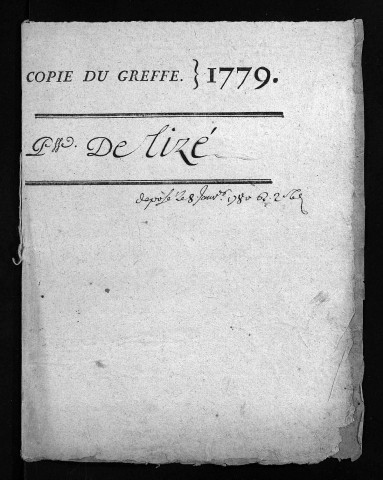 COPIE DU GREFFE. } 1779.
P.sse De lizé
deposé le 8 Janv.r 1780